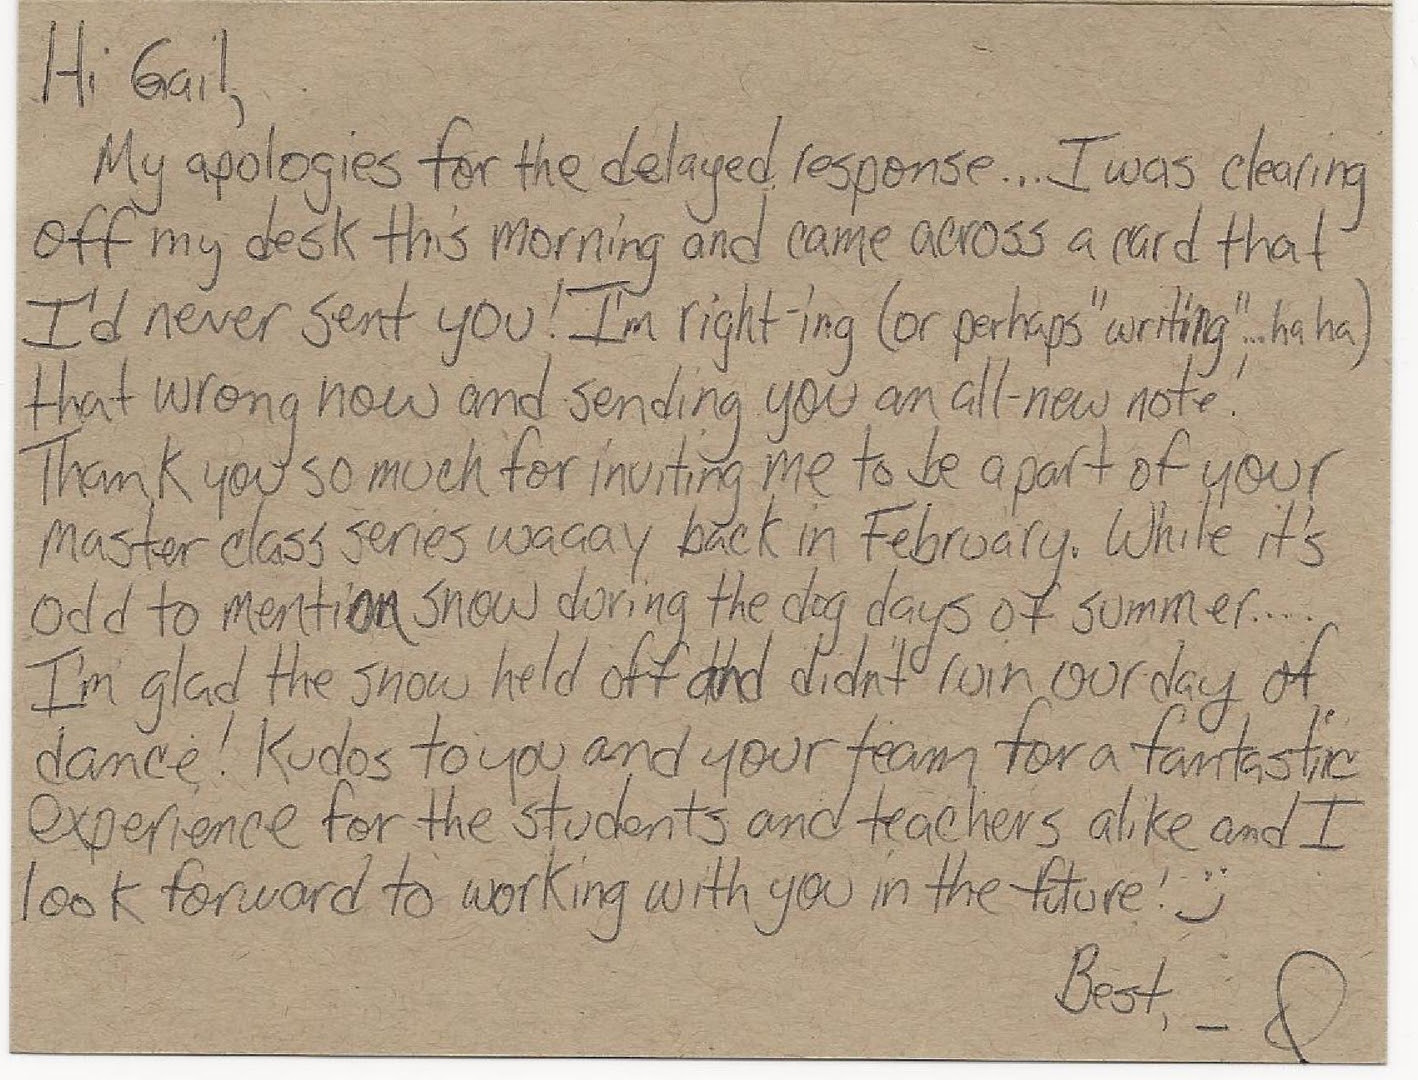 Hi Gail,
My apologies for the delayed response...I was clearing
off my desk this morning and came across a card that
I'd never sent you! I'm right-ing (or perhaps "writing"...ha ha)
that wrong now and sending you an all-new note!
Thank you so much for inviting me to be a part of your
master class series waaay back in February. While it's
odd to mention snow during the dog days of summer....
I'm glad the snow held off and didn't ruin our day of
dance! Kudos to you and your team for a fantastic
experience for the students and teachers alike and I
look forward to working with you in the future! :)
Best, –